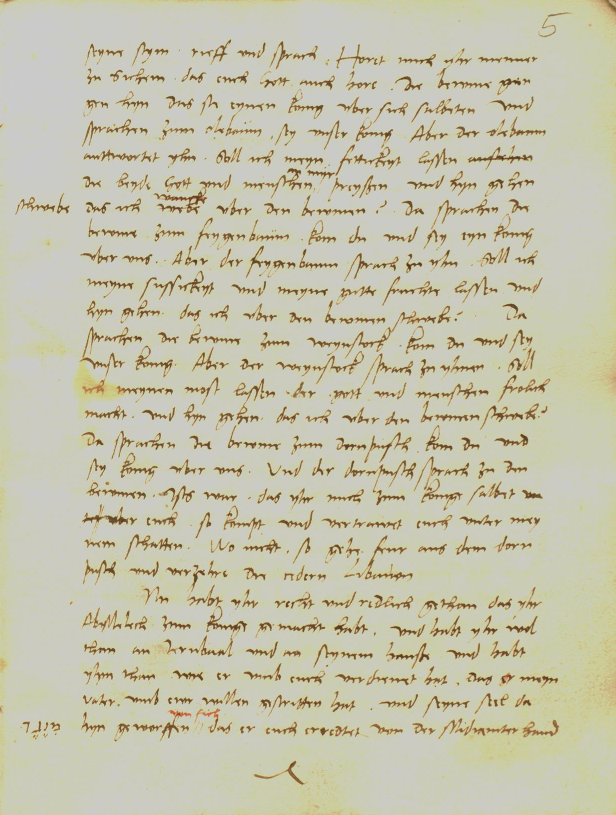 5
seyne stym . rieff und sprach . Horet mich yhr menner
zu Sichem . das euch Gott auch hore . Die bewme gien
gen hyn das sie eynen konig uber sich salbeten und
sprachen zum olebawm , sey unser konig Aber der olebawm
anttwortet yhn . Soll ich meyn fettickeyt lassen
die beyde Gott und menschen an myr preyßen und hyn gehen
schwebe das ich webe uber den bewmen ? Da sprachen die
bewme zum feygenbawm . kom du und sey eyn konig
uber uns . Aber der feygenbawm sprach zu yhn . Soll ich
meyne sussickeyt und meyne gutte fruchte lassen und
hyn gehen . das ich uber den bewmen schwebe ? Da
sprachen die bewme zum weynstock . kom du und sey
unser konig . Aber der weynstock sprach zu yhnen . Soll
ich meynen most lassen . der gott und menschen frolich
macht . und hyn gehen . das ich uber den bewmen schwebe ?
Da sprachen die bewme zum dornpusch kom du und
sey konig uber uns . Und der dornpusch sprach zu den
bewmen . Ists war . das yhr mich zum konige salbet
uber euch . so kompt und vertrawet euch unter mey
nem schatten . Wo nicht , so gehe fewr aus dem dorn
pusch und verzehre die cedern Libanon
Nu habt yhr recht und redlich gethan das yhr
AbiMelech zum konige gemacht habt . und habt yhr wol
than an JeruBaal und an seynem hauße und habt
yhm than wie er umb euch verdienet hat . das meyn
vater . umb ewr willen gestritten hat . und seyne seel da
hyn geworffen von sich das er euch erredtet von der Midianiter hand